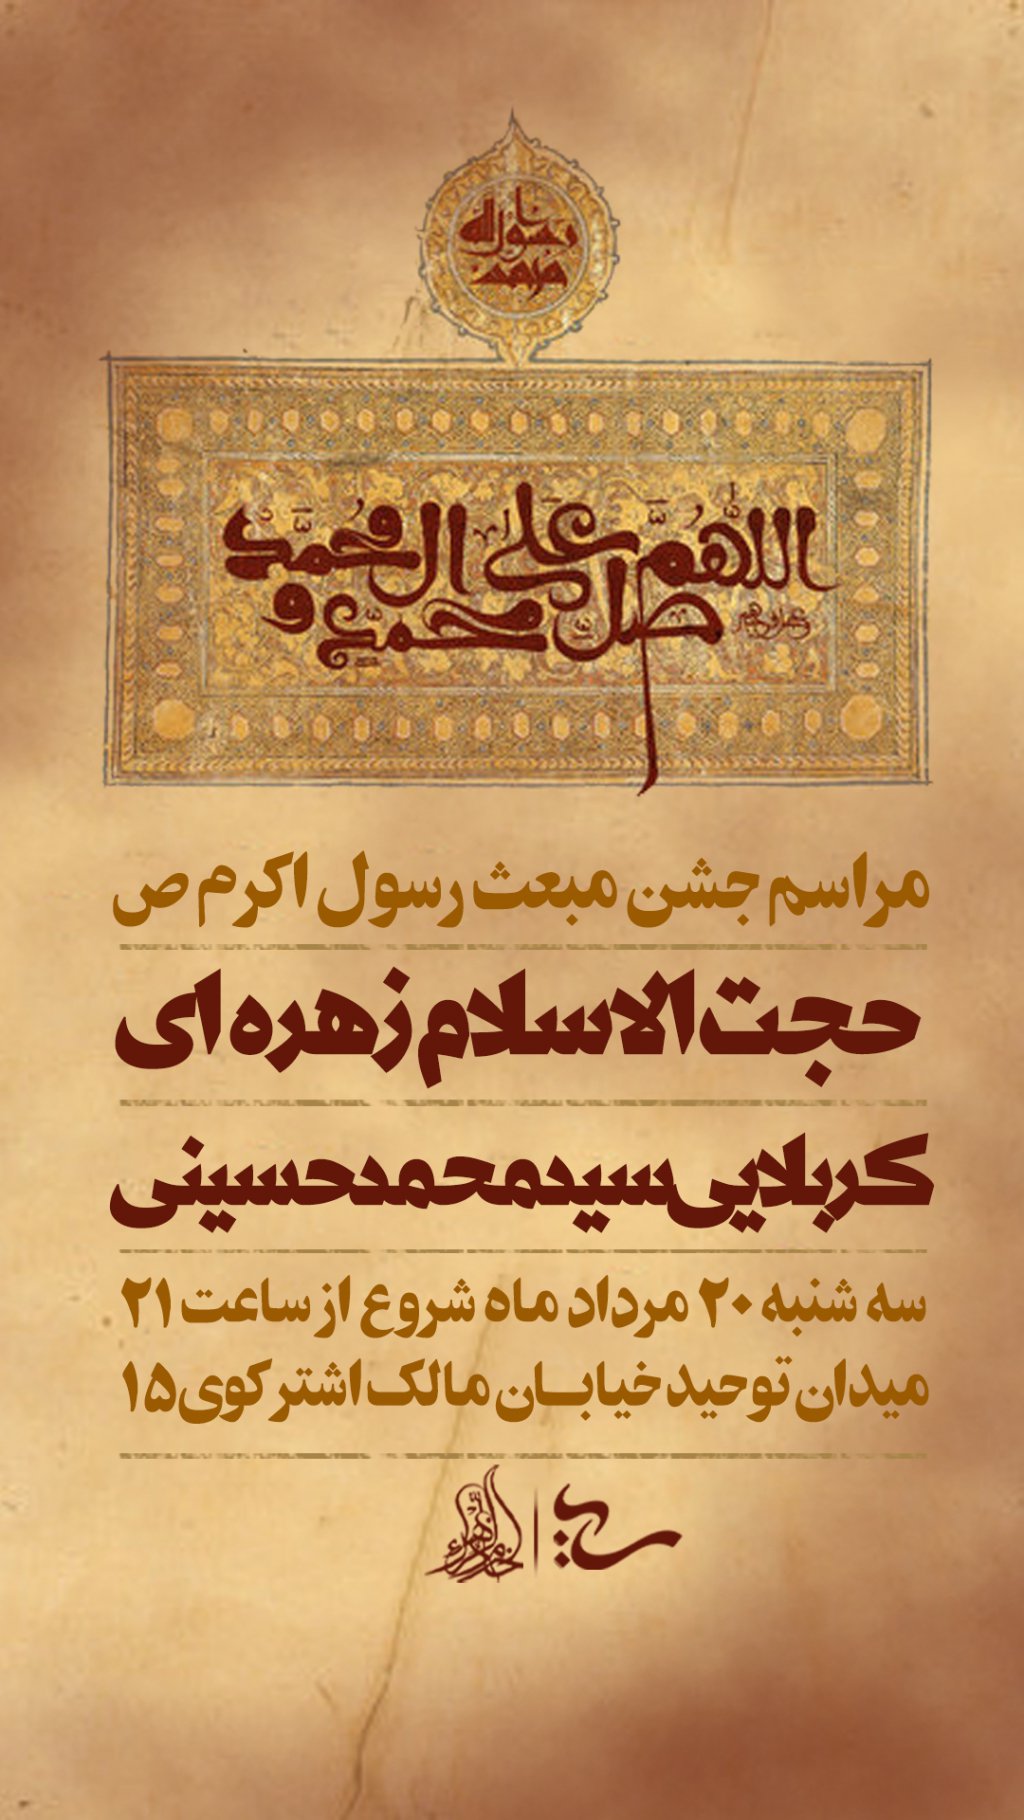 یا
رسول الله
محمد
اللهم صل علی محمد و آل محمد
و عجل فرجهم
مراسم جشن مبعث رسول اکرم ص
حجت الاسلام زهره ای
کربلایی سیدمحمدحسینی
سه شنبه ۲۰ مرداد ماه شروع از ساعت ۲۱
میدان توحید خیابان مالک اشتر کوی ۱۵